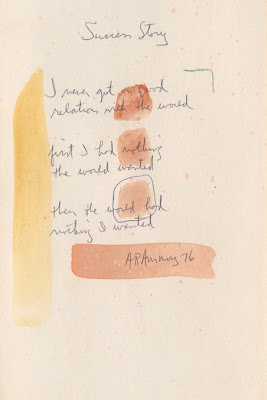 Success Story
I never got on good
relations with the world
first I had nothing
the world wanted
then the world had
nothing I wanted
A R Ammons 76